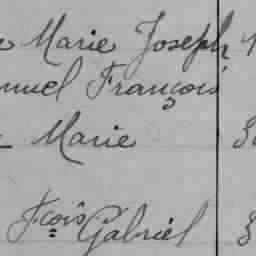 Marie Joseph
nuel François
Marie
Fçois Gabriel